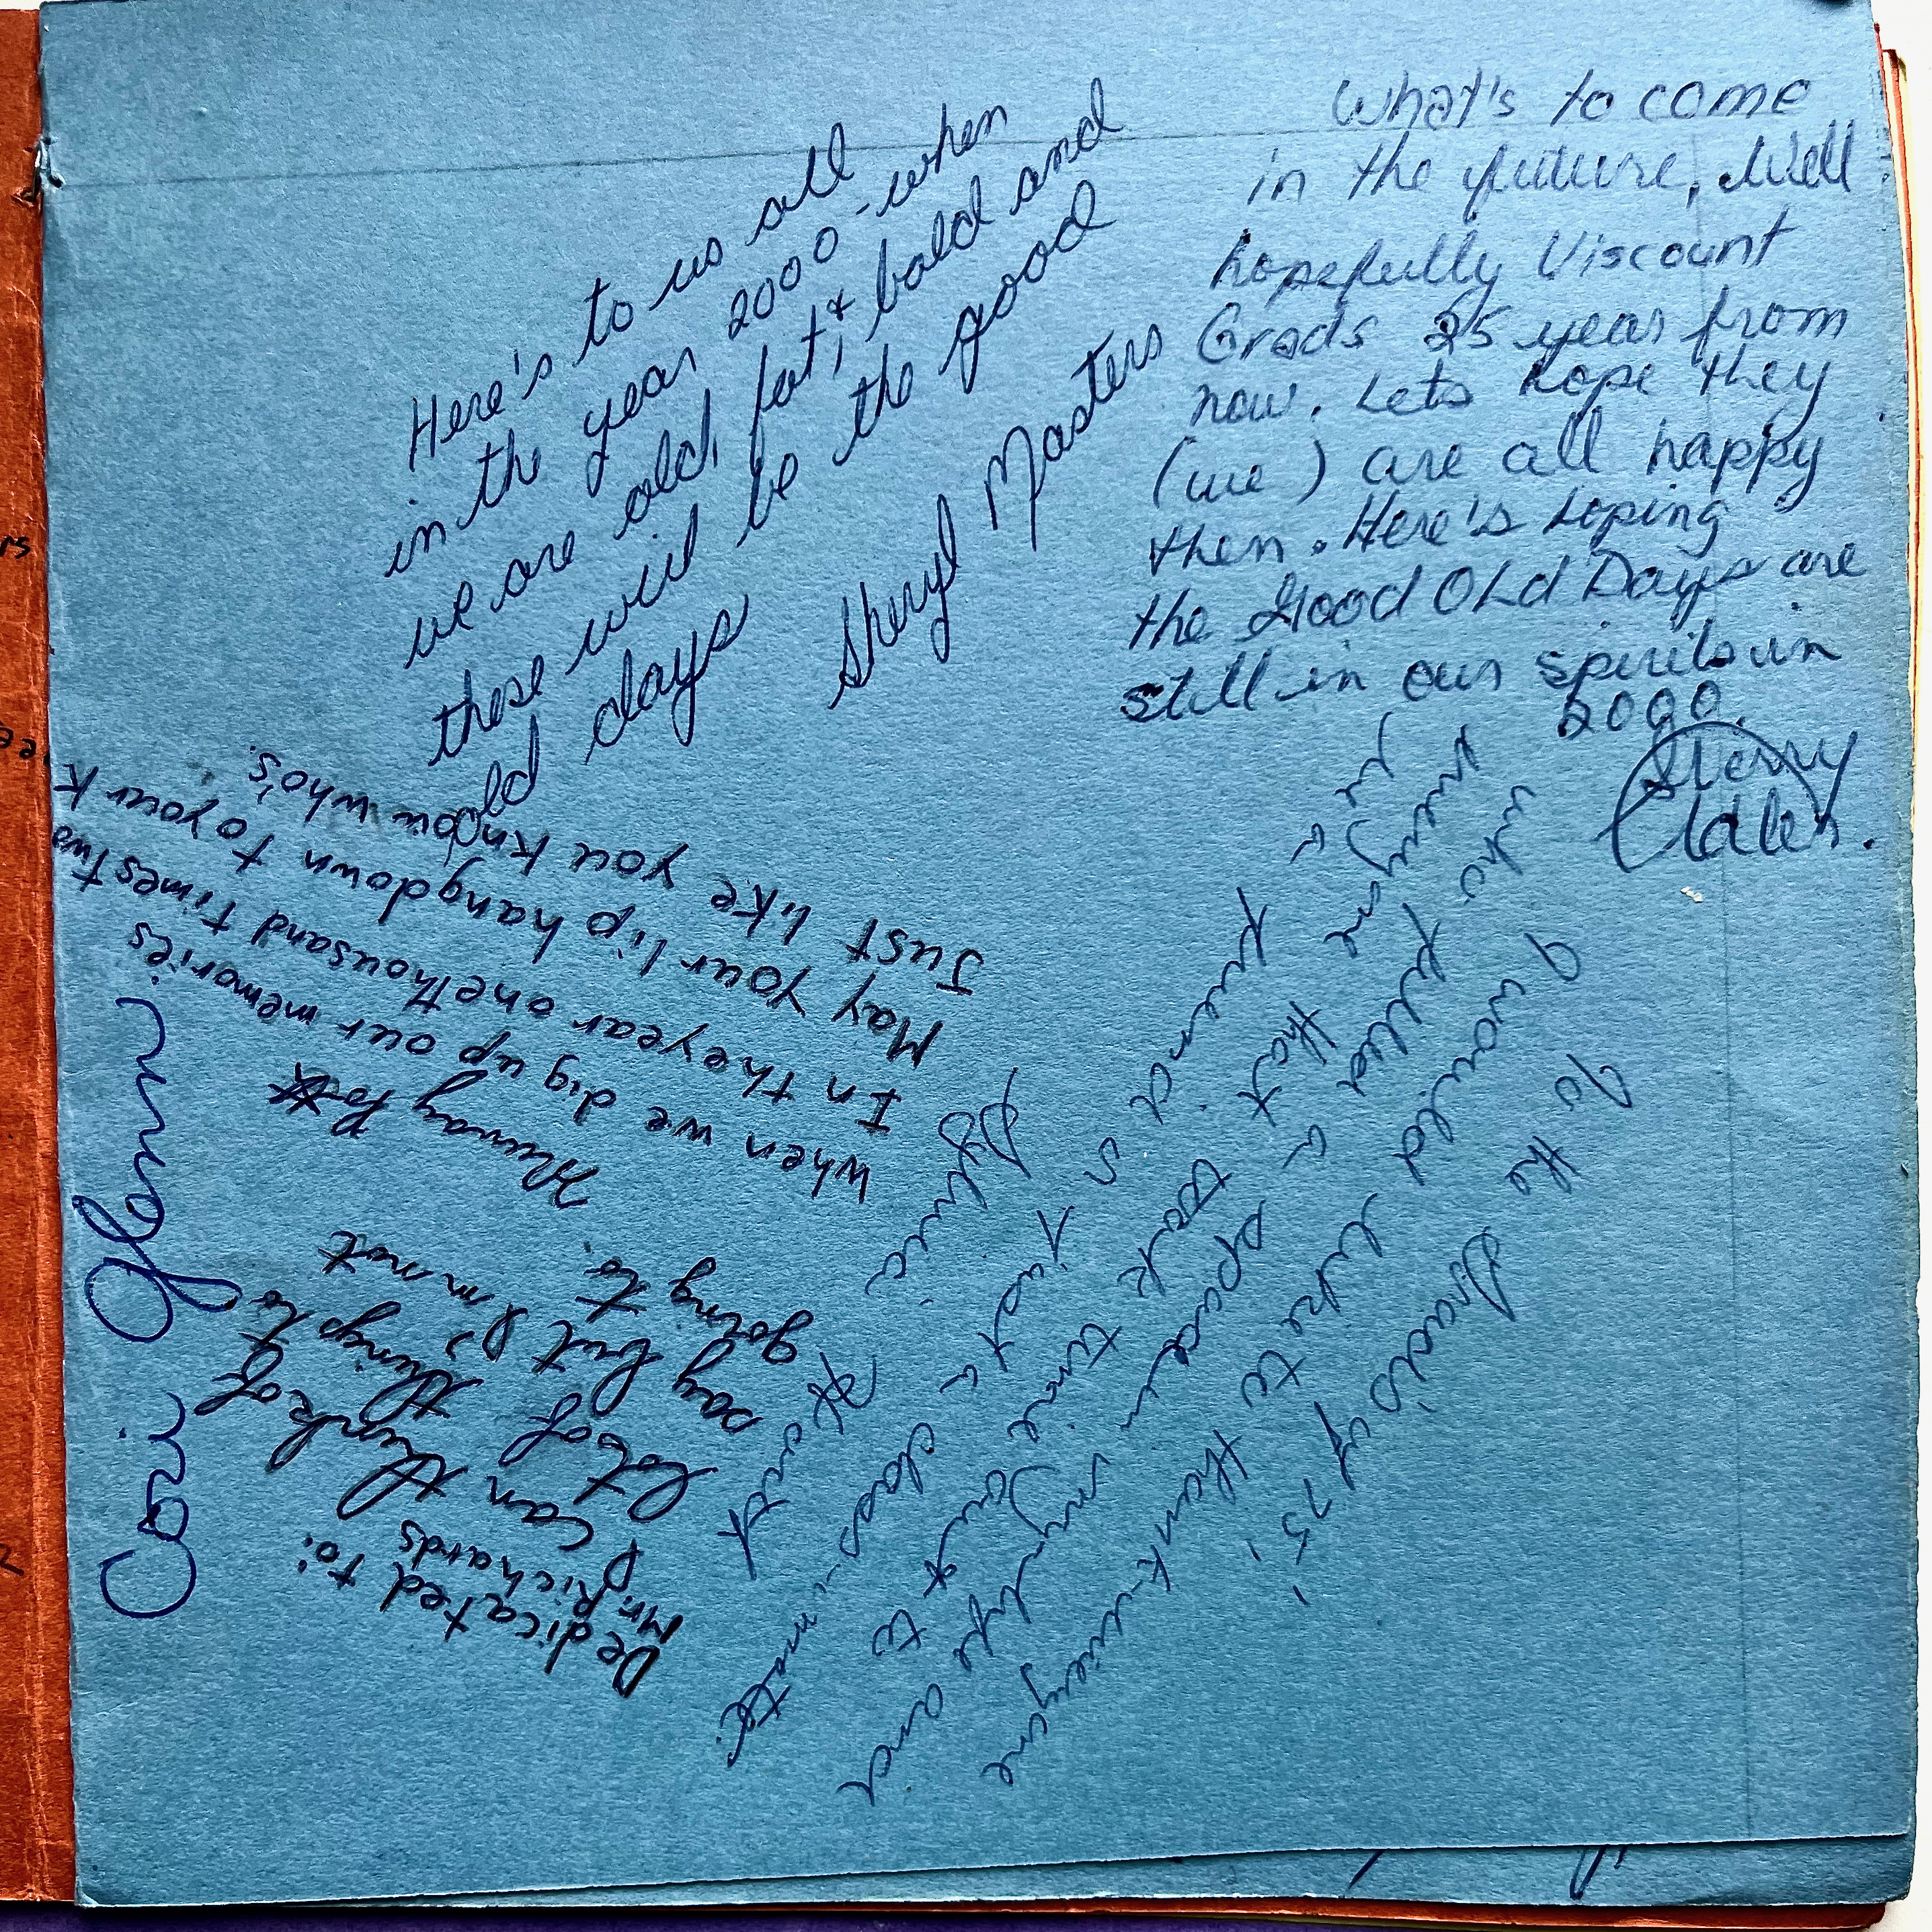 Here's to us all
in the year 2000 - when
we are old, fat, & bald and
these will be the good
old days
Sheryl Masters
What's to come
in the future, Well
hopefully Viscount
Grads 25 year from
now. Lets hope they
(we) are all happy
then. Here's hoping
the Good OLd Days are
still in our spirits in
2000.
When we dig up our memories
In the year one thousand times two
May your lip hang down to your k
Just like you know who's.
Murray
Cori Glenn
Dedicated to:
Mr. Richards
I can think of
lots of things to
say but I'm not
going to.
To the Grads of 75!
I would like to thank-everyone
who filled a space in my life and
everyone that took time out to
just a class-mate.
friend